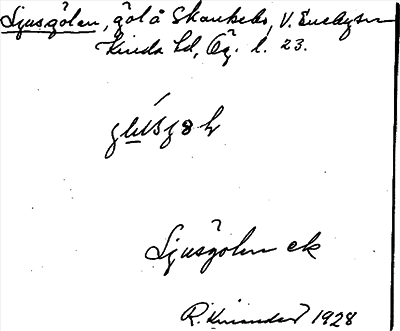 Ljusgölen, göl å Skankebo, V. Eneby sn
Kinda hd, Ög. l. 23.
Ljusgölen ek
1928